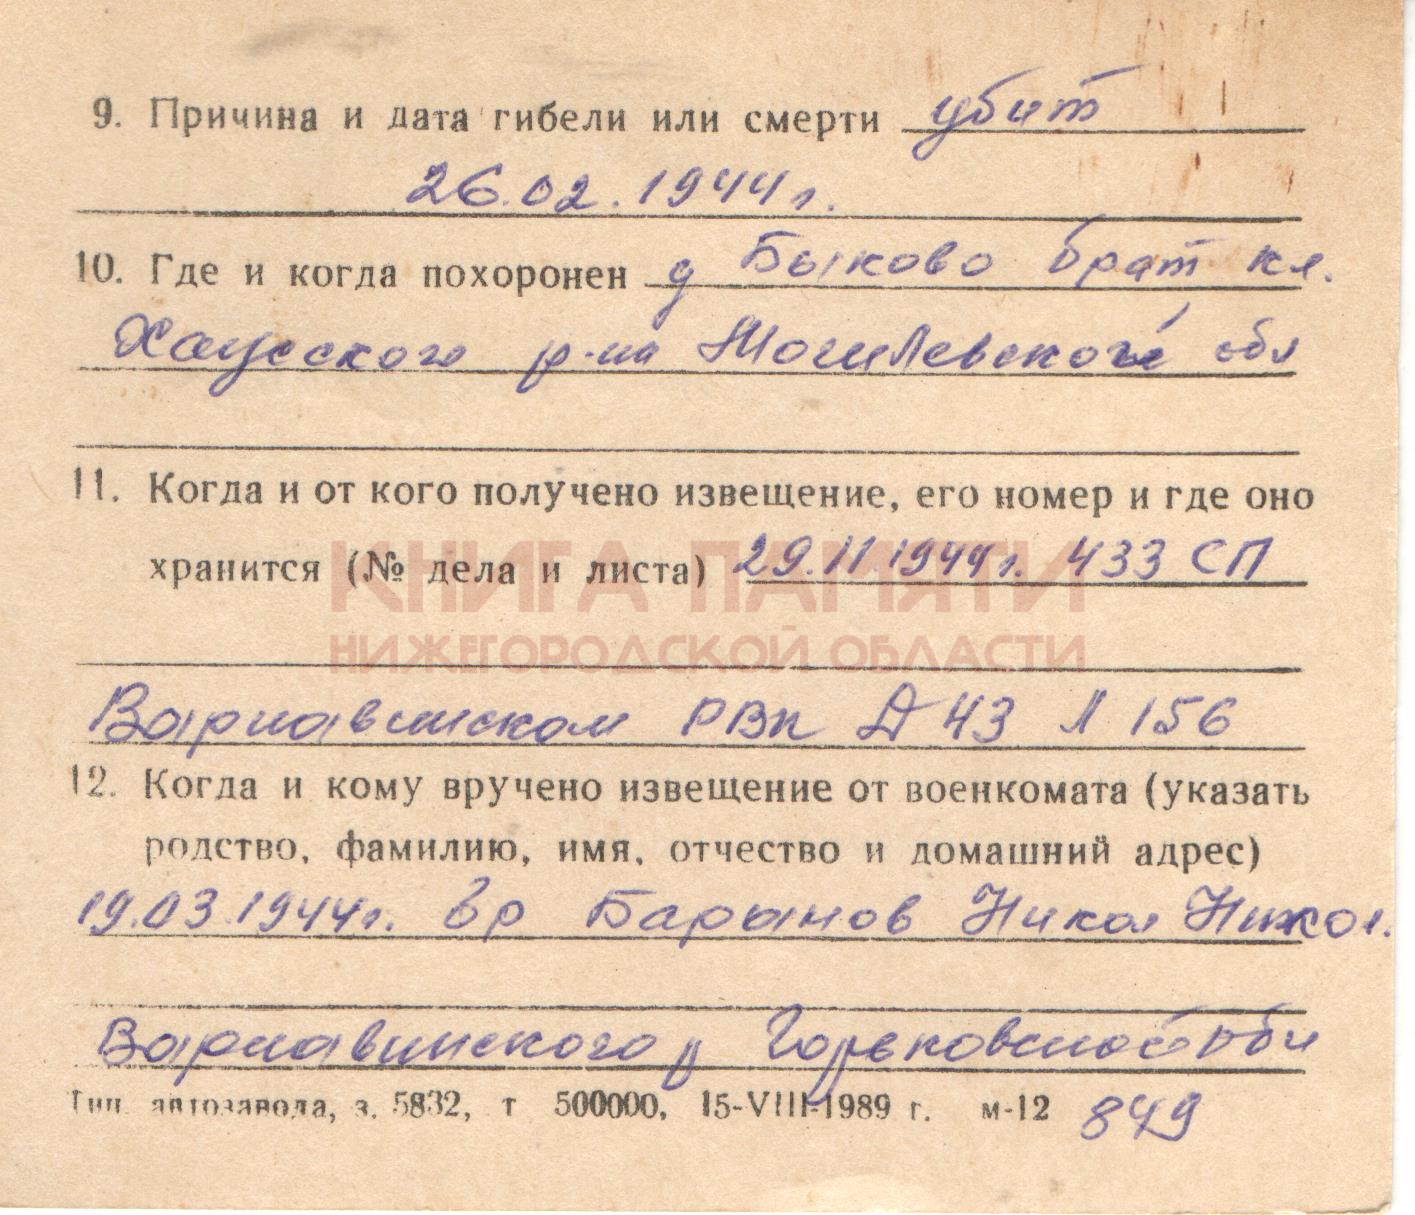 9. Причина и дата гибели или смерти убит
26.02.1944г.
10. Где и когда похоронен д Быково брат кл.
Хаусского р-на Могилевской обл
11. Когда и от кого получено извещение, его номер и где оно
хранится (№ дела и листа) 29.11.1944г. 433 СП
КНИГА ПАМЯТИ
НИЖЕГОРОДСКОЙ ОБЛАСТИ
Варнавинском РВК Д 43 Л 156
12. Когда и кому вручено извещение от военкомата (указать
родство, фамилию, имя, отчество и домашний адрес)
19.03.1944г. бр Барынов Никол Никол.
Варнавинского р Горьковской обл
Тип. автозавода, з. 5832, т 500000, 15-VIII-1989 г. м-12 849